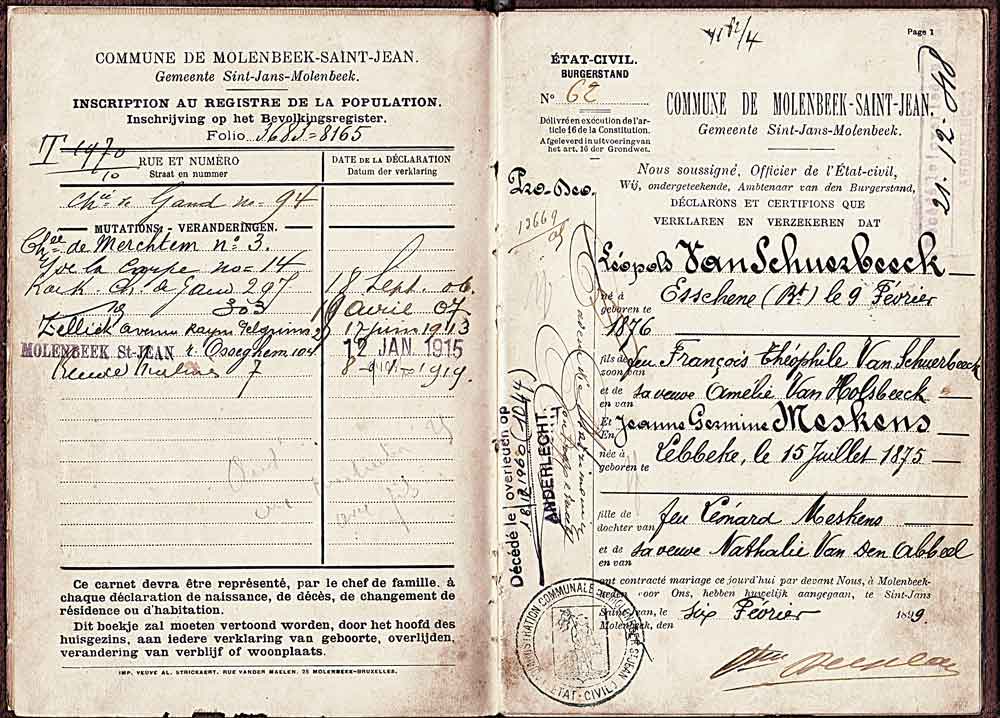 COMMUNE DE MOLENBEEK-SAINT-JEAN.
Gemeente Sint-Jans-Molenbeek.
INSCRIPTION AU REGISTRE DE LA POPULATION.
Inschrijving op het Bevolkingsregister.
Folio 3683=8165
T 1970
10
RUE ET NUMÉRO
Straat en nummer
DATE DE LA DÉCLARATION
Datum der verklaring
Chée de Gand no 94
MUTATIONS. - VERANDERINGEN.
Chée de Merchtem no 3.
de la Carpe no 14
Ch. de Gand 297 18 Sept. 06
303 19 avril 07
Zellick avenue 17 juin 1913
MOLENBEEK St-JEAN r. Osseghem 104 12 JAN. 1915
7 8 1919
Ce carnet devra être représenté, par le chef de famille, à
chaque déclaration de naissance, de décès, de changement de
résidence ou d'habitation.
Dit boekje zal moeten vertoond worden, door het hoofd des
huisgezins, aan iedere verklaring van geboorte, overlijden,
verandering van verblijf of woonplaats.
IMP. VEUVE AL. STRICKAERT, RUE VANDER MAELEN, 25 MOLENBEEK-BRUXELLES.
Page 1
ÉTAT-CIVIL.
BURGERSTAND
No 62
Délivré en exécution de l'ar-
ticle 16 de la Constitution.
Afgeleverd in uitvoering van
het art. 16 der Grondwet.
COMMUNE DE MOLENBEEK-SAINT-JEAN.
Gemeente Sint-Jans-Molenbeek.
21.12.
Pro-Deo.
Nous soussigné, Officier de l'État-civil,
Wij, ondergeteekende, Ambtenaar van den Burgerstand,
DÉCLARONS ET CERTIFIONS QUE
VERKLAREN EN VERZEKEREN DAT
Léopold Van Schuerbeeck
né à
geboren te
Esschene (Bt) le 9 Février
1876
fils de
zoon van
feu François Théophile Van Schuerbeeck
et de
en van
sa veuve Amélie Van Holsbeeck
Et
En
Jeanne Germine Meskens
née à
geboren te
Lebbeke, le 15 Juillet 1875
fille de
dochter van
feu Léonard Meskens
et de
en van
sa veuve Nathalie Van Den Abbeel
ont contracté mariage ce jourd'hui par devant Nous, à Molenbeek-
heden voor Ons, hebben huwelijk aangegaan, te Sint-Jans
Saint-Jean, le
Molenbeek, den
six Février 1899.
Décédé le
overleden op
ANDERLECHT.
ADMINISTRATION COMMUNALE DE MOLENBEEK-ST-JEAN
ÉTAT-CIVIL